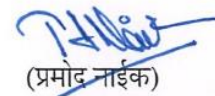 (प्रमोद नाईक)